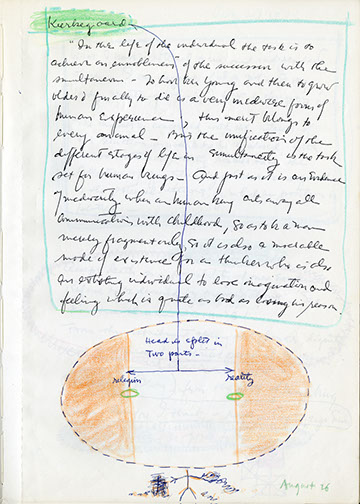 Kierkegaard
"In the life of the individual the task is to
achieve an ennoblement of the successive with the
simultaneous - To have been young, and then to grow
older & finally to die is a very mediocre form of
human experience, this merit belongs to
every animal - But the unification of the
different stages of life in simultaneity is the task
set for human beings - And just as it is an evidence
of mediocrity when a human being cuts away all
communication with childhood, so as to be a man
merely fragmentarily, so it is also a miserable
mode of existence for a thinker who is also
an existing individual to lose imagination and
feeling which is quite as bad as losing his reason.
Head is split in
Two parts -
religion
reality
August 26